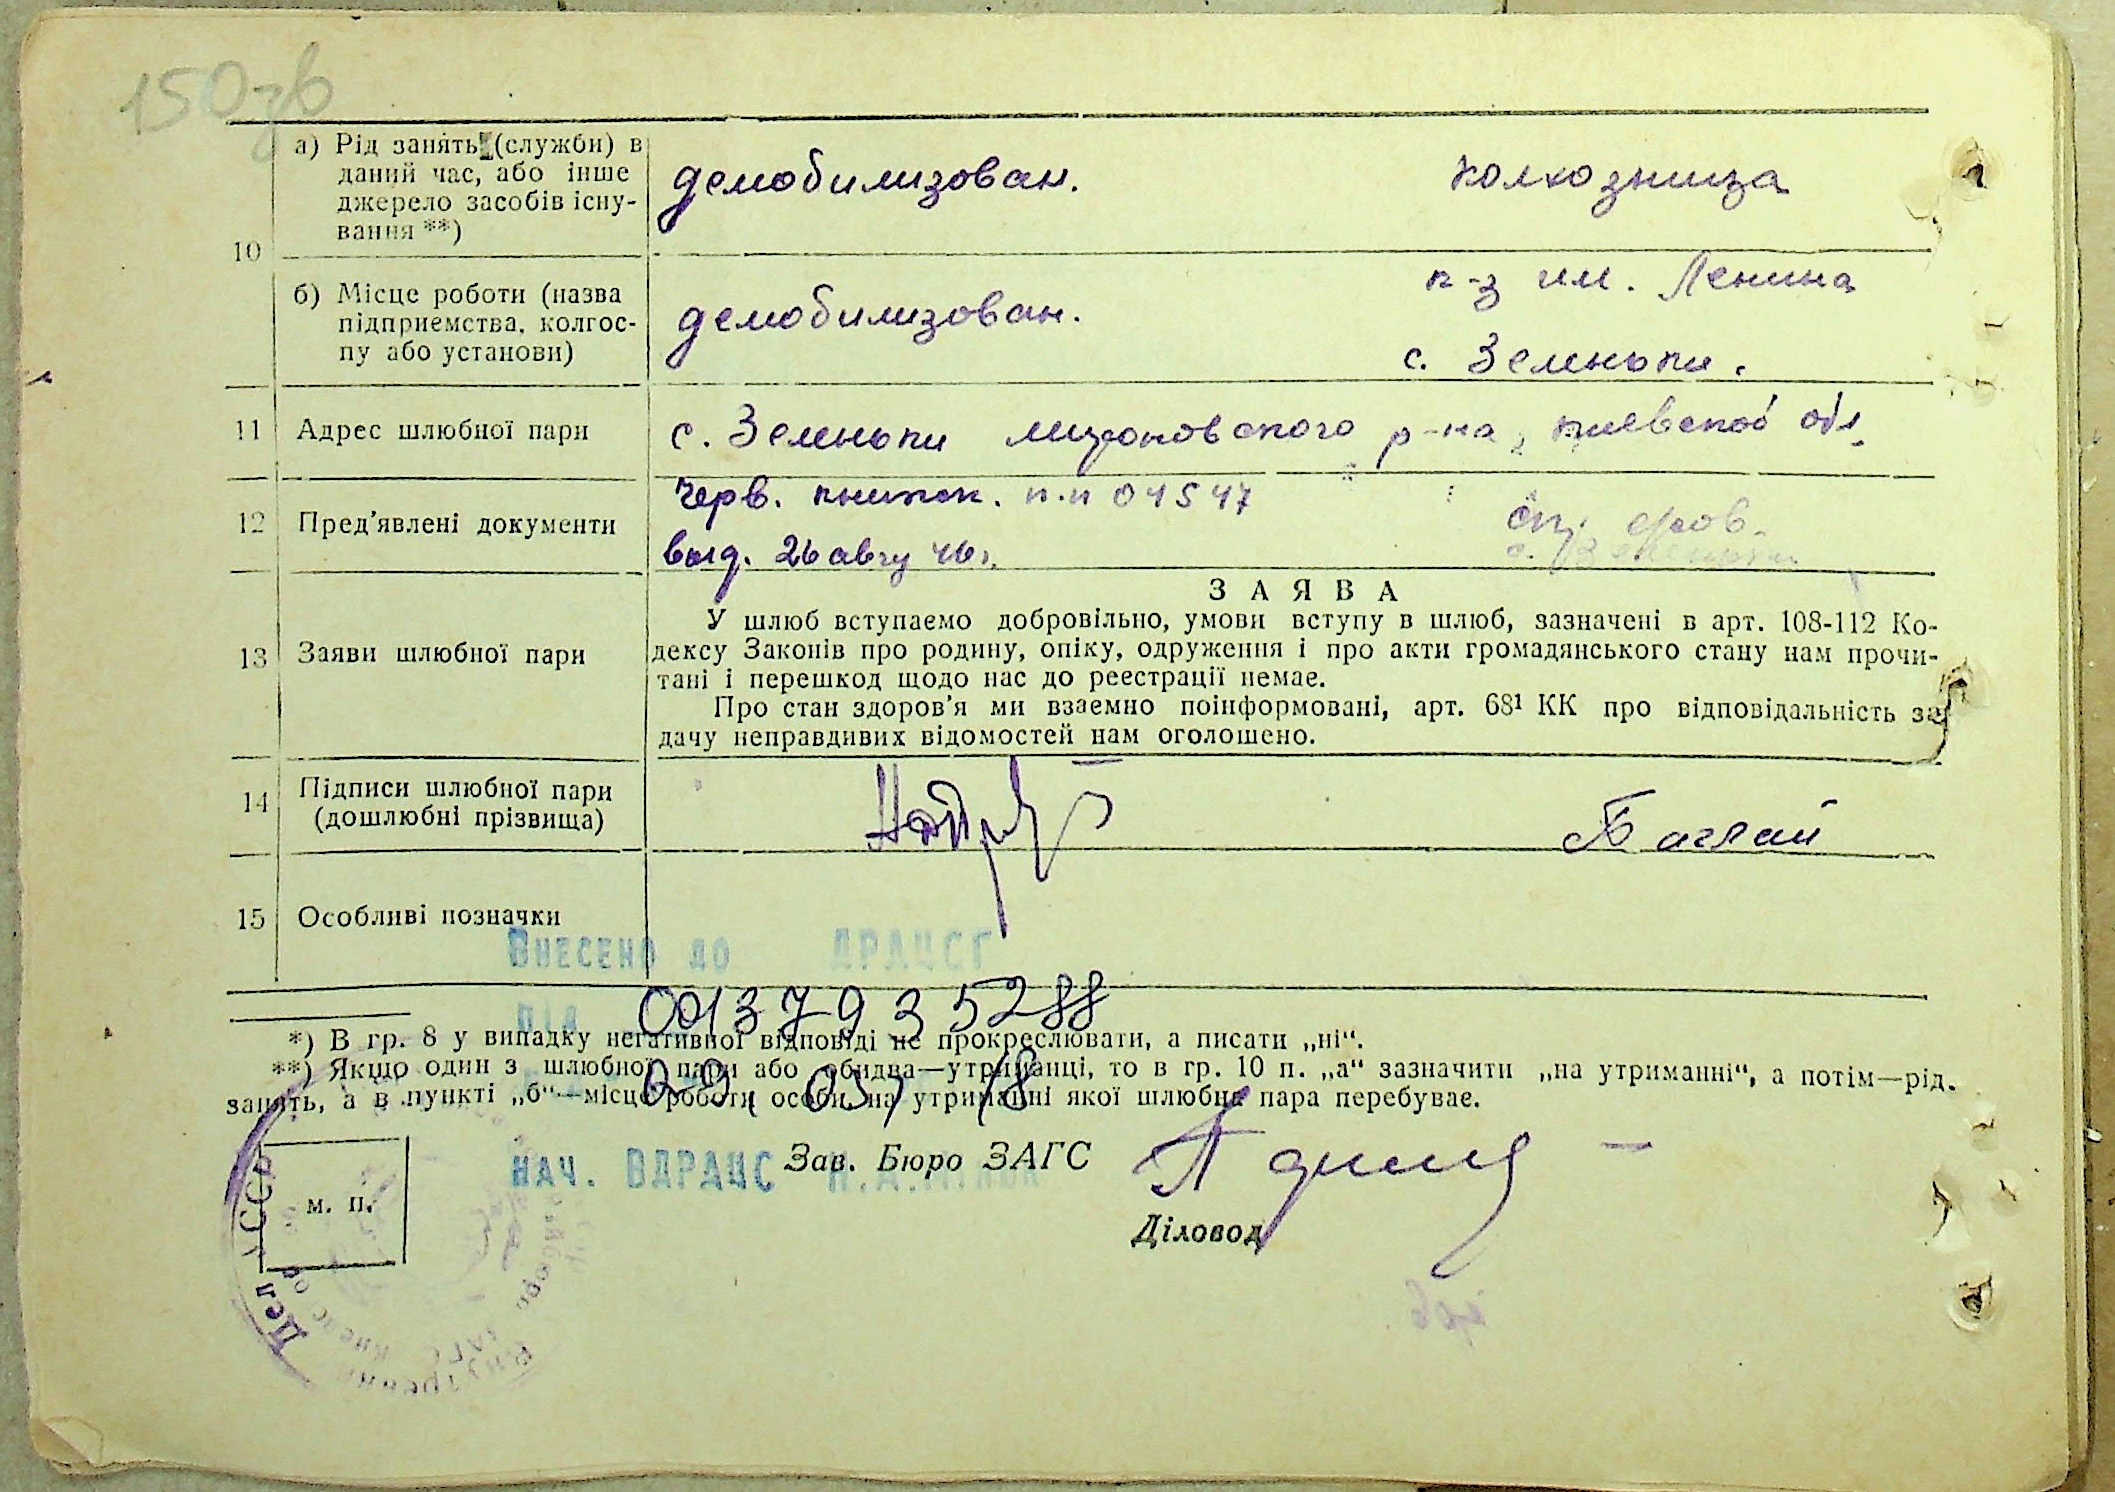 150зв
а) Рід занять (служби) в
даний час, або інше
джерело засобів існу-
вання **)
демобилизован.
колхозница
10
б) Місце роботи (назва
підприємства, колгос-
пу або установи)
демобилизован.
к-з им. Ленина
с. Зеленьки.
11 Адрес шлюбної пари
с. Зеленьки мироновского р-на, киевской обл.
12 Пред'явлені документи
черв. книжк.
выд. 26 авгу 46 г.
с. Зеленьки
13 Заяви шлюбної пари
ЗАЯВА
У шлюб вступаємо добровільно, умови вступу в шлюб, зазначені в арт. 108-112 Ко-
дексу Законів про родину, опіку, одруження і про акти громадянського стану нам прочи-
тані і перешкод щодо нас до реєстрації немає.
Про стан здоров'я ми взаємно поінформовані, арт. 68¹ КК про відповідальність за
дачу неправдивих відомостей нам оголошено.
14 Підписи шлюбної пари
(дошлюбні прізвища)
Баглай
15 Особливі позначки
ВНЕСЕНО ДО ДРАЦСГ
ПІД 00137935288
*) В гр. 8 у випадку негативної відповіді не прокреслювати, а писати „ні“.
**) Якщо один з шлюбної пари або обидва—утриманці, то в гр. 10 п. „а“ зазначити „на утриманні“, а потім—рід.
занять, а в пункті „б“—місце роботи особи, на утриманні якої шлюбна пара перебуває.
НАЧ. ВДРАЦС
Зав. Бюро ЗАГС
м. п.
Діловод